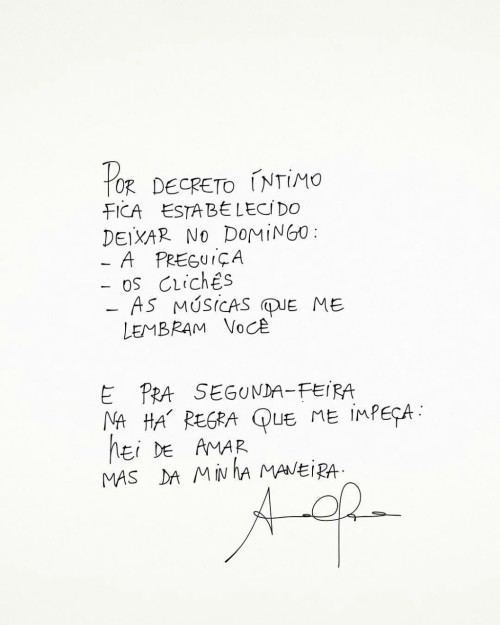 POR DECRETO ÍNTIMO
FICA ESTABELECIDO
DEIXAR NO DOMINGO:
- A PREGUIÇA
- OS CLICHÊS
- AS MÚSICAS QUE ME
LEMBRAM VOCÊ
E PRA SEGUNDA-FEIRA
NA HÁ REGRA QUE ME IMPEÇA:
HEI DE AMAR
MAS DA MINHA MANEIRA.